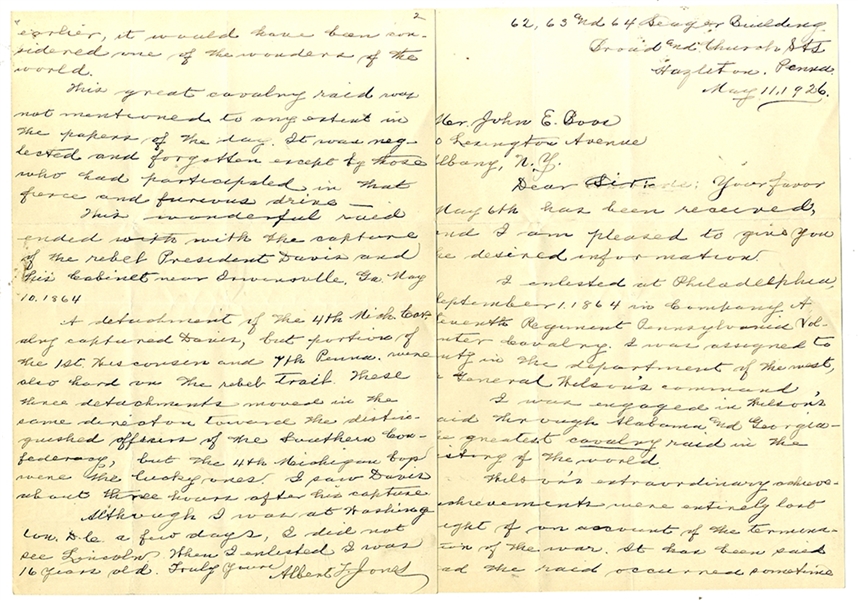 62, 63 and 64 Seager Building
Broad and Church Sts
Hazleton, Penna.
May 11, 1926.
Mr. John E. Boos
Lexington Avenue
lbany, N.Y.
Dear Sir: Your favor
May 6th has been received,
nd I am pleased to give you
he desired information.
I enlisted at Philadelphia,
eptember 1, 1864 in Company A
eventh Regiment Pennsylvania Vol-
nteer Cavalry. I was assigned to
uty in the department of the west,
General Wilson's command
I was engaged in Wilson's
aid through Alabama and Georgia-
he greatest cavalry raid in the
istory of the world
Wilson's extraordinary achieve-
chievements were entirely lost
ight of on account of the termina-
tion of the war. It has been said
ad the raid occurred sometime
2
earlier, it would have been con-
sidered one of the wonders of the
world.
This great cavalry raid was
not mentioned to any extent in
the papers of the day. It was neg-
lected and forgotten except by those
who had participated in that
fierce and furious drive-
This wonderful raid
ended with with the capture
of the rebel President Davis and
his Cabinet near Irwinsville, Ga. May
10, 1864
A detachment of the 4th Mich Cav-
alry captured Davis, but portion of
the 1st. Wisconsin and 7th Penna. were
also hard on the rebel trail. These
three detachments moved in the
same direction toward the distin-
guished officers of the Southern Con-
federacy, but the 4th Michigan Cav
were the lucky ones. I saw Davis
about three hours after his capture.
Although I was at Washing
ton, D.C. a few days, I did not
see Lincoln. When I enlisted I was
16 years old. Truly yours
Albert L. Jones